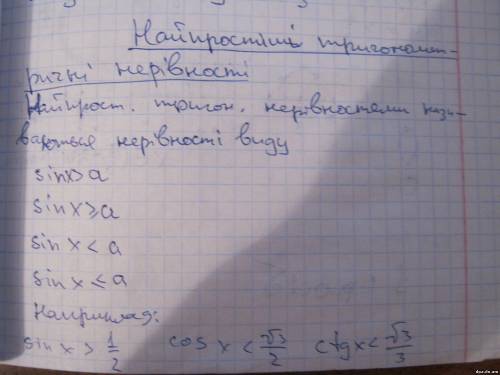 Найпростіші тригономет-
ричні нерівності
Найпрост. тригон. нерівностями нази-
ваються нерівності виду
sinx>a
sin x ≥ a
sin x < a
sin x ≤ a
Наприклад:
sin x > 1/2 cos x < √3/2 ctg x < √3/3